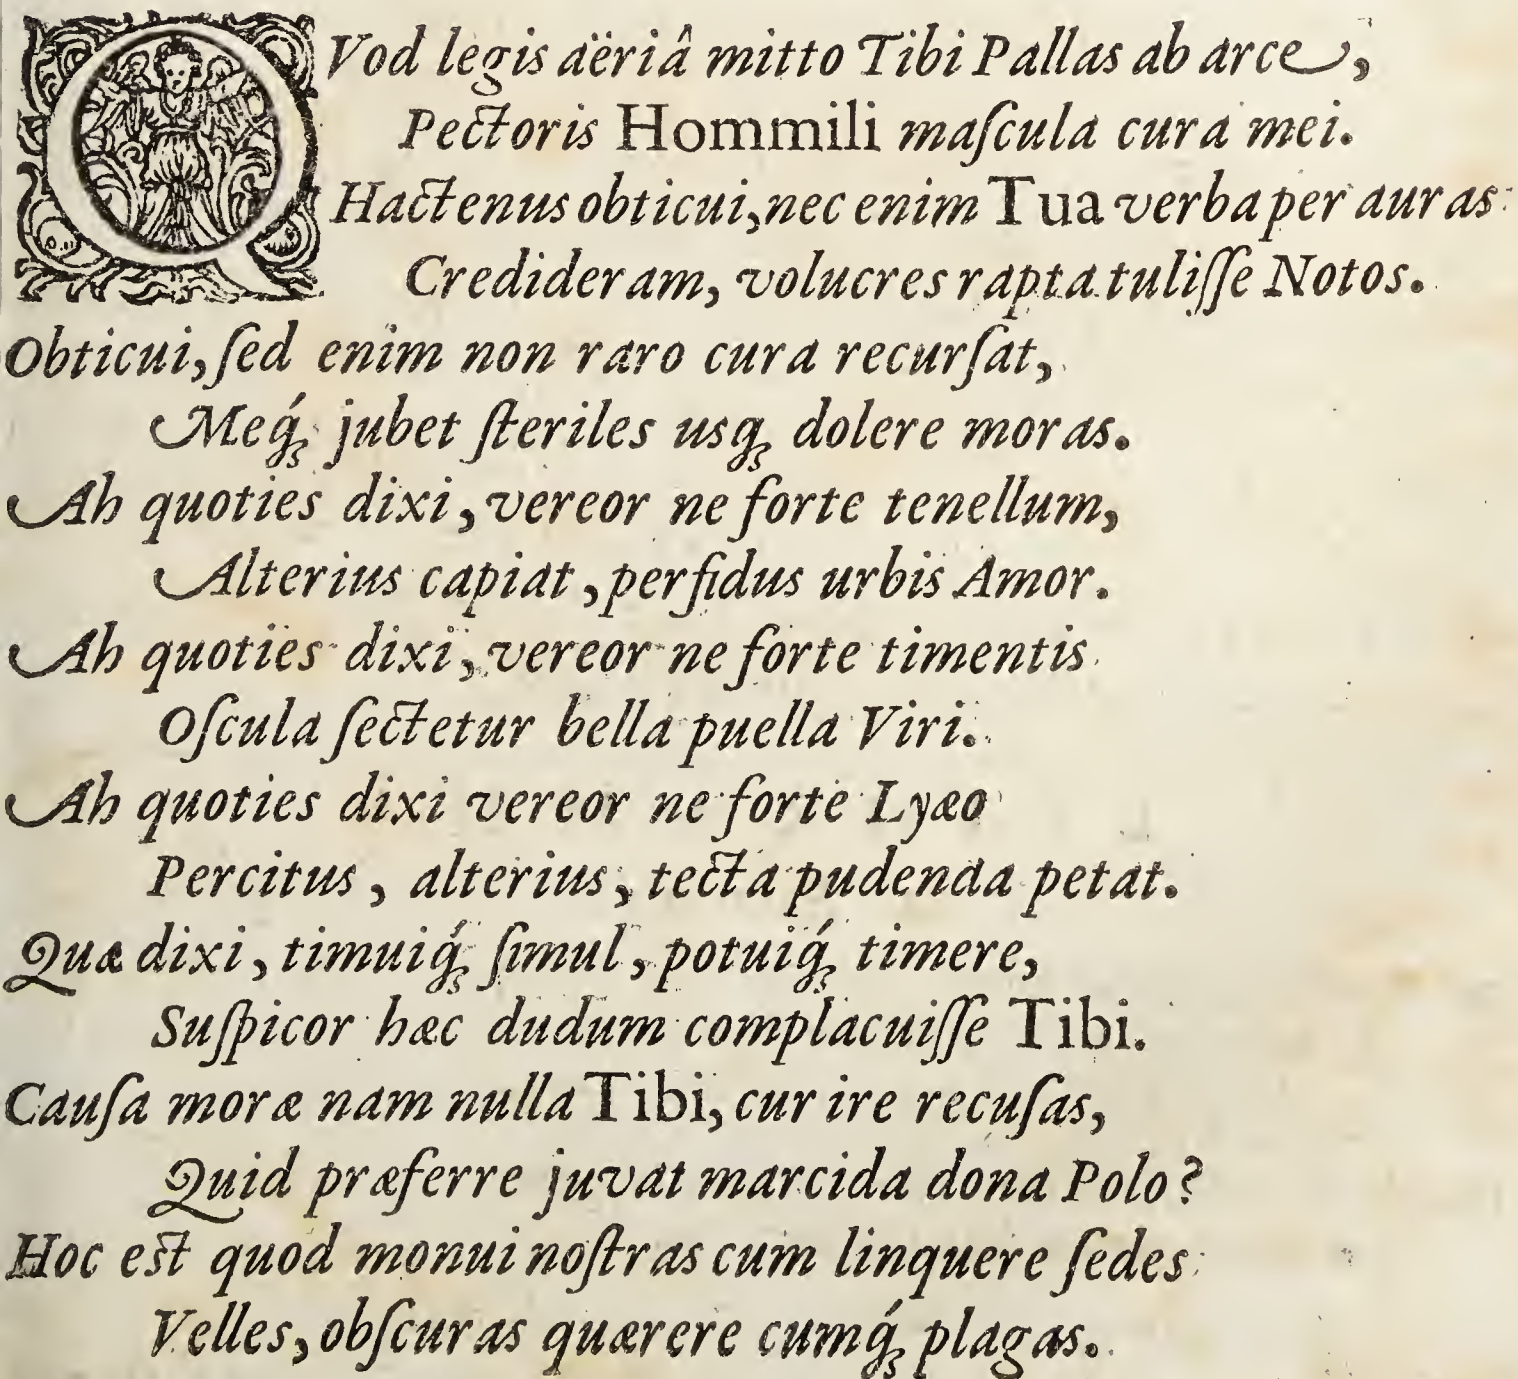 QVod legis aëriâ mitto Tibi Pallas ab arce,
Pectoris Hommili maſcula cura mei.
Hactenus obticui, nec enim Tua verba per auras
Credideram, volucres rapta tuliſſe Notos.
Obticui, ſed enim non raro cura recurſat,
Meq́ꝫ jubet ſteriles usqꝫ dolere moras.
Ah quoties dixi, vereor ne forte tenellum,
Alterius capiat, perfidus urbis Amor.
Ah quoties dixi, vereor ne forte timentis
Oſcula ſectetur bella puella Viri.
Ah quoties dixi vereor ne forte Lyæo
Percitus, alterius, tecta pudenda petat.
Quæ dixi, timuiq́ꝫ ſimul, potuiq́ꝫ timere,
Suſpicor hæc dudum complacuiſſe Tibi.
Cauſa moræ nam nulla Tibi, cur ire recuſas,
Quid præferre juvat marcida dona Polo?
Hoc est quod monui noſtras cum linquere ſedes
Velles, obſcuras quærere cumq́ꝫ plagas.